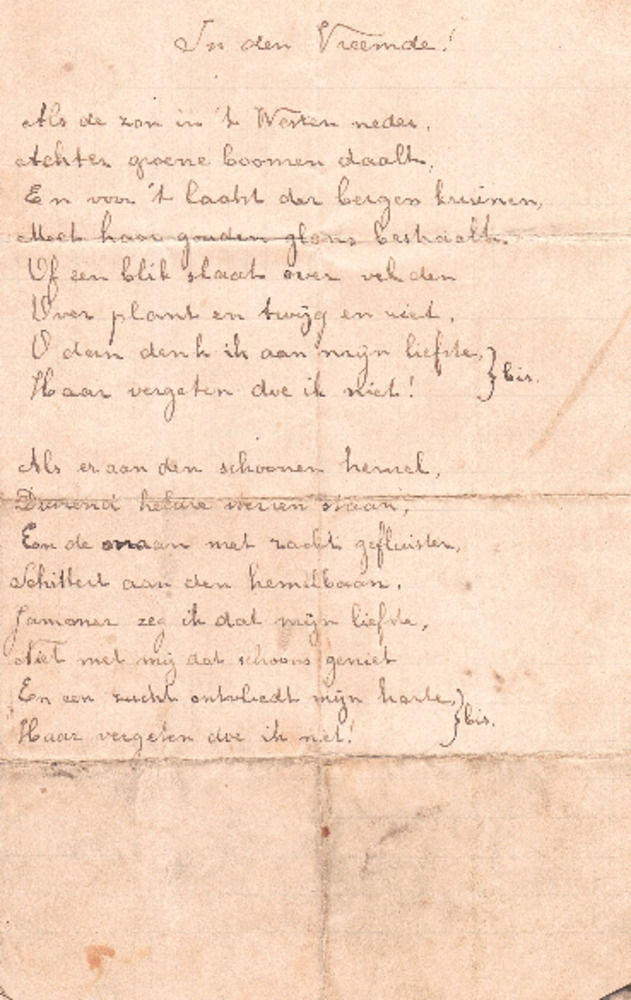 In den Vreemde!
Als de zon in 't Westen neder,
Achter groene boomen daalt,
En voor 't laatst der bergen kruinen,
Met haar gouden glans bestraalt.
Of een blik slaat over velden
Over plant en twijg en riet,
O dan denk ik aan mijn liefste,
Haar vergeten doe ik niet! } bis.
Als er aan den schoonen hemel,
Duizend heldere sterren staan,
En de maan met zacht gefluister,
Schittert aan den hemelbaan.
Jammer zeg ik dat mijn liefste,
Niet met mij dat schoons geniet
En een zucht ontvliedt mijn harte,
Haar vergeten doe ik niet! } bis.